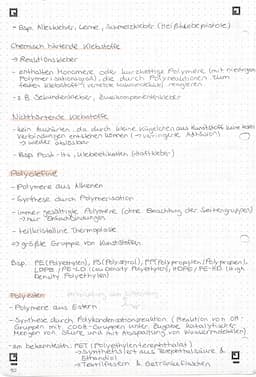 - Bsp. Alleskleber, Leime, Schmelzkleber (Heißklebepistole)
Chemisch härtende Klebstoffe
→ Reaktionskleber
- enthalten Monomere oder kurzkettige Polymere (mit niedrigem
Polymerisationsgrad), die durch Polyreaktionen zum
festen Klebstoff reagieren
- z.B. Sekundenkleber, Zweikomponentenkleber
Nichthärtende Klebstoffe
- kein Aushärten, da durch kleine Kügelchen aus Kunststoff keine festen
Verbindungen entstehen können (→ verringerte Adhäsion)
→ wieder ablösbar
- Bsp. Post-Its, Klebeetiketten (Haftkleber)
Polyolefine
- Polymere aus Alkenen
- Synthese durch Polymerisation
- immer gesättigte Polymere (ohne Beachtung der Seitengruppen)
→ nur Einfachbindungen
- teilkristalline Thermoplaste
→ größte Gruppe von Kunststoffen
Bsp. PE (Polyethylen), PS (Polystyrol), PP (Polypropylen/Polypropen),
LDPE / PE-LD (Low Density Polyethylen), HDPE / PE-HD (High
Density Polyethylen)
Polyester
- Polymere aus Estern
- Synthese durch Polykondensationsreaktion (Reaktion von OH-
Gruppen mit COOH-Gruppen unter Zugabe katalytischer
Mengen von Säure und mit Abspaltung von Wassermolekülen)
- am bekanntesten: PET (Polyethylenterephthalat)
→ Synthetisiert aus Terephthalsäure &
Ethandiol
→ Textilfasern & Getränkeflaschen